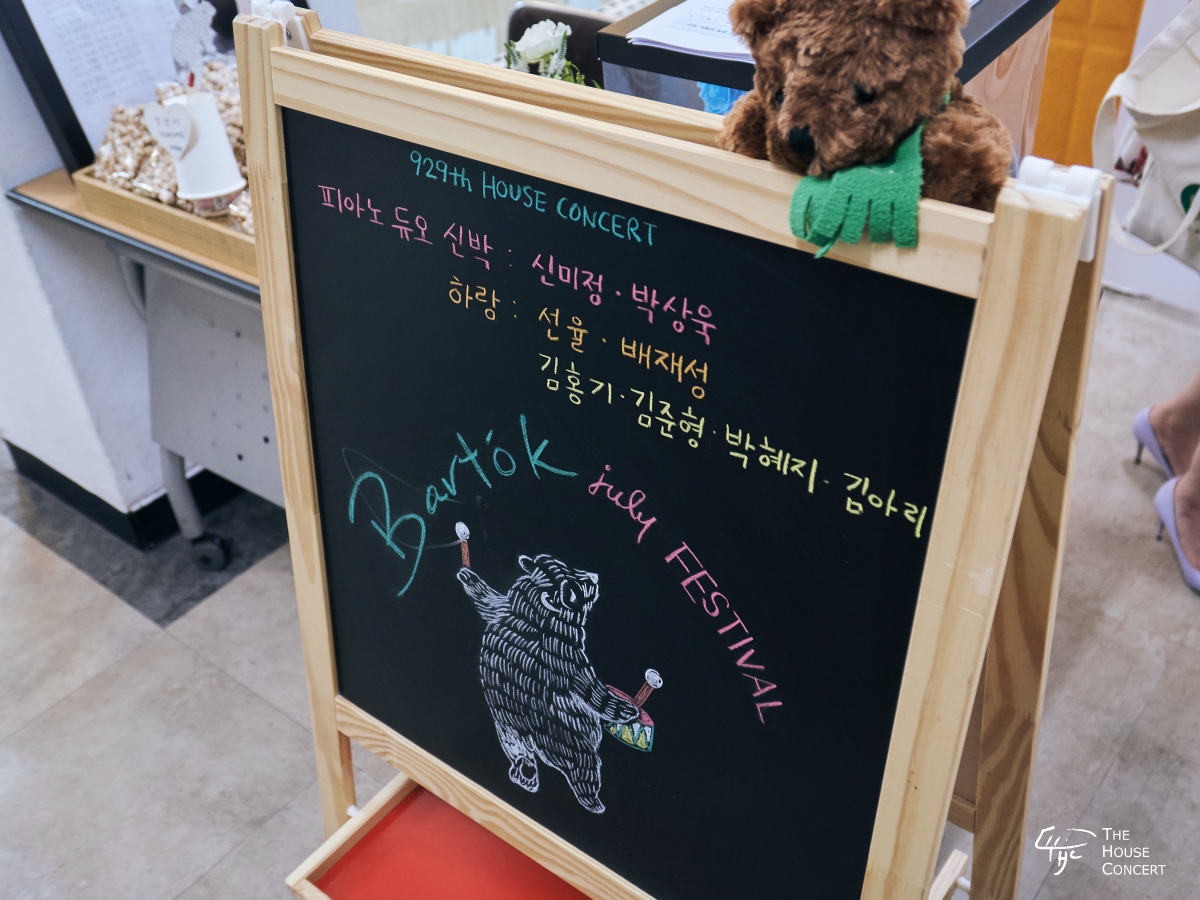 929th HOUSE CONCERT
피아노 듀오 신박 : 신미정 · 박상욱
하랑 : 선율 · 배재성
김홍기 · 김준형 · 박혜지 · 김아리
Bartók july FESTIVAL
THE
HOUSE
CONCERT